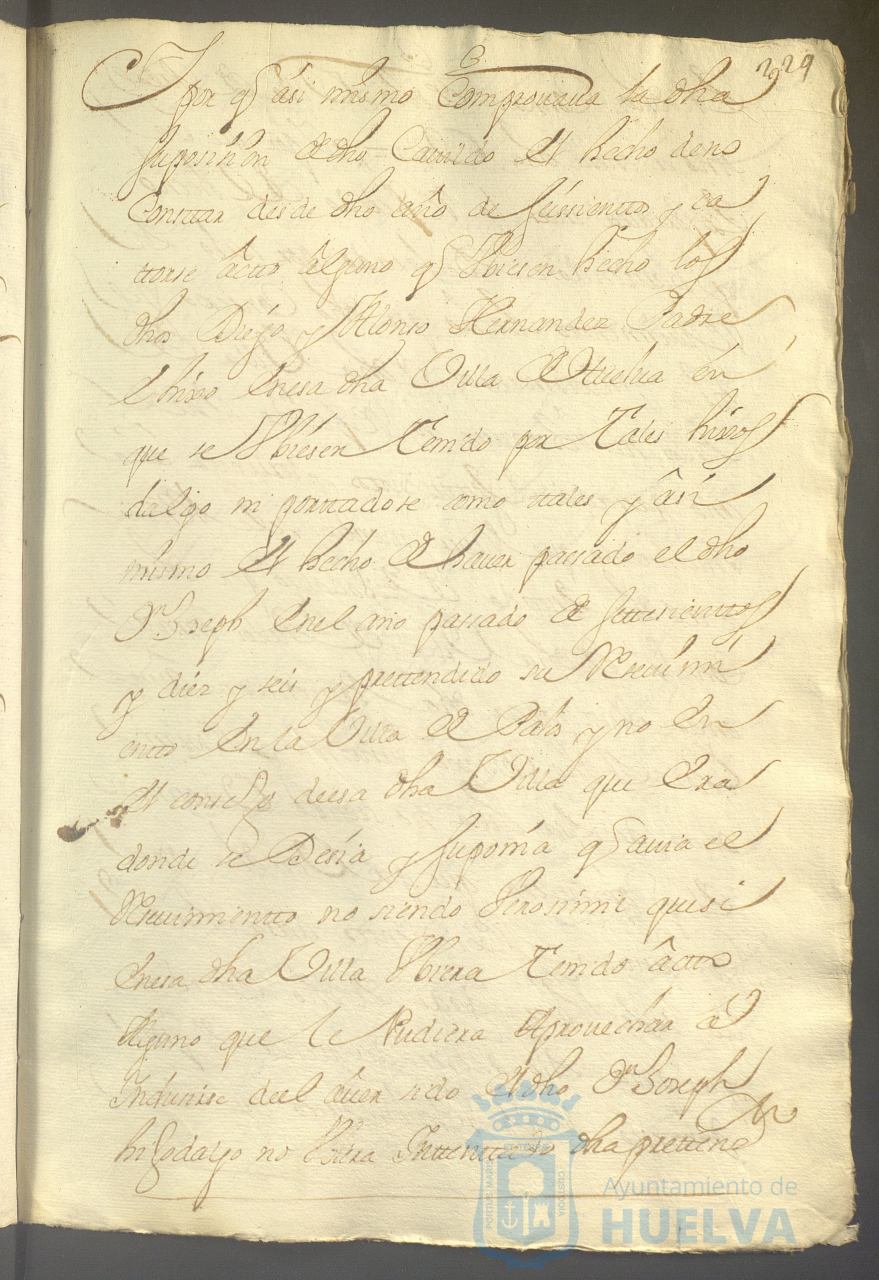 229
Y por q asi mismo Comprovava la dha
suposision de dho Cavildo el hecho de no
Constar desde dho año de seissientos y ca
ttorse actto alguno q Vbiesen hecho los
dhos Diego y Alonso Hernandez Padre
e hixo en esa dha Villa de Huelva en
que se Vbiesen tenido por tales hixos
dalgo ni porttadose como ttales y asi
mismo el hecho de haver passado el dho
Dn Joseph en el año passado de settesienttos
y diez y seis y prettendido su Resivimi
entto en la Villa de Palos y no en
el consejo de esa dha Villa que era
donde se Desia y suponia q avia el
Resivimientto no siendo Verosimil que si
en esa dha Villa Vbiera tenido acttos
alguno que le Pudiera Aprovechar a
Indusirse de el aver sido el dho Dn Joseph
hijodalgo no Vbiera Inttenttado dha prettens
Ayuntamiento de
HUELVA